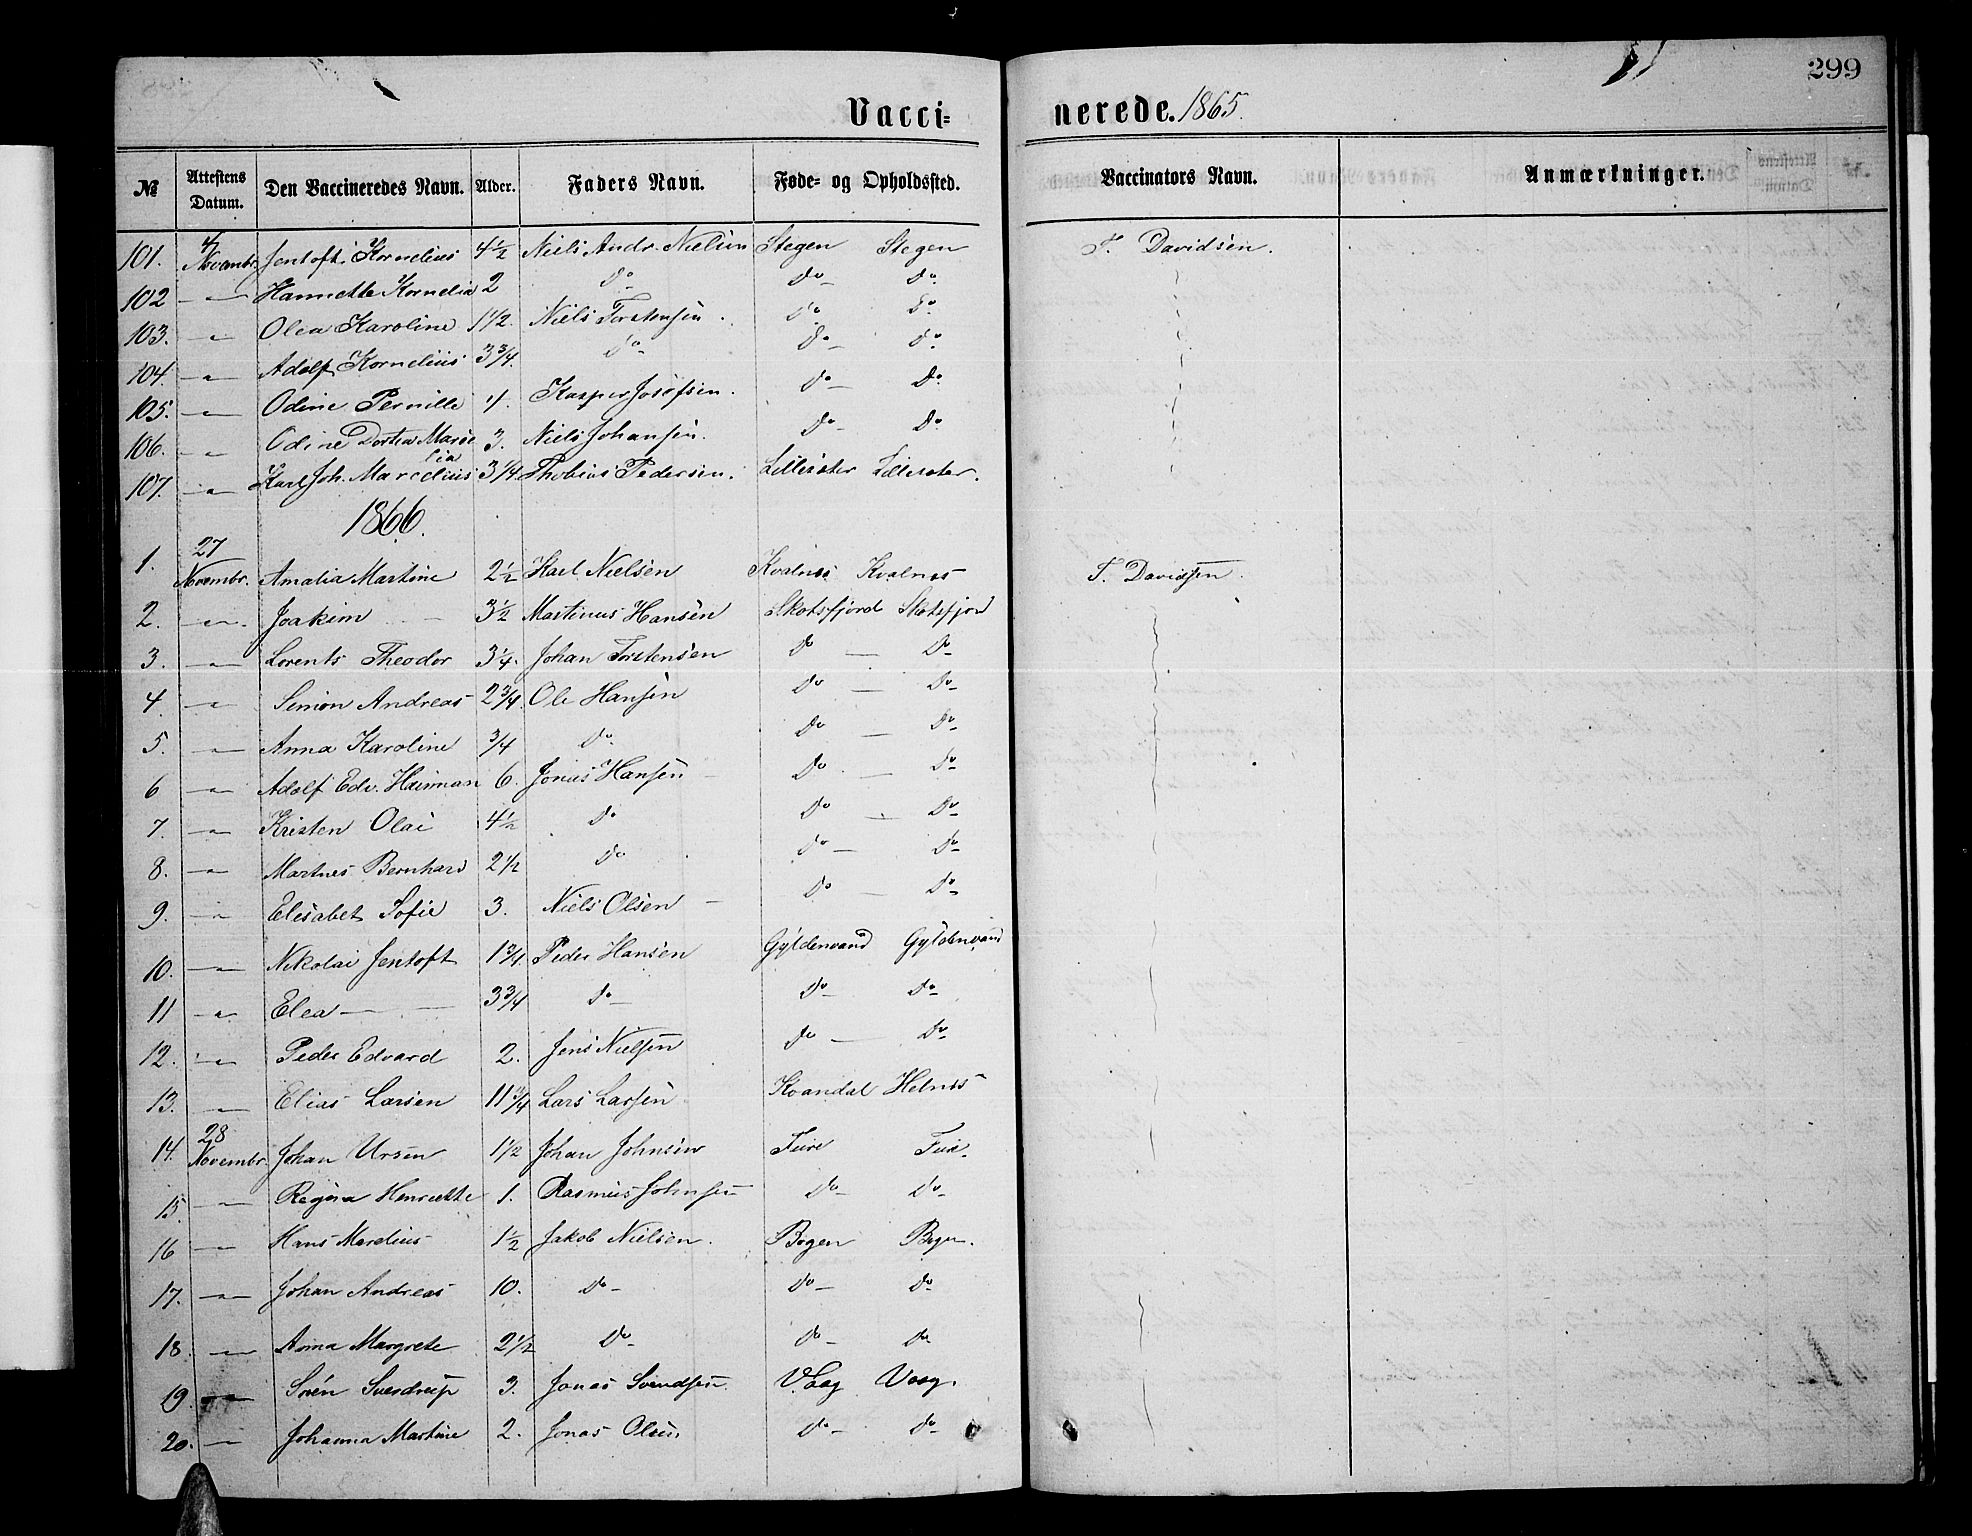 299
Vacci= nerede. 1865.
№ Attestens Datum. Den Vaccineredes Navn. Alder. Faders Navn. Føde- og Opholdssted. Vaccinators Navn. Anmærkninger.
101. 4/Novembr. Jentoft Kornelius 4½ Niels Andr. Nielsen Stegen Stegen T. Davidsen.
102 —„— Hannette Kornelia 2 do do do
103. —„— Olea Karoline 1½. Niels Torstensen. do do
104. —„— Adolf Kornelius 3¾. do do do
105. —„— Odine Pernille 4. Kasper Josefsen. do do
106. —„— Odine Dortea Marselia 3. Niels Johansen. do do
107. —„— Karl Joh. Marcelius 3¼ Thobias Pedersen. Lillesæter Lillesæter.
1866.
1. 27/Novembr. Amalia Martine 2½ Karl Nielsen Kvalnes Kvalnes T. Davidsen.
2. —„— Joakim 3½ Martinus Hansen Skotsfjord Skotsfjord
3. —„— Lorents Theodor 3¼. Johan Torstensen do — do
4. —„— Simon Andreas 2¾ Ole Hansen do — do
5. —„— Anna Karoline ¾ do do — do
6 —„— Adolf Edv. Hairman 6. Jonas Hansen do — do
7. —„— Kristen Olai 4½ do do — do
8. —„— Martnes Bernhard 2½ do do — do
9. —„— Elisabet Sofie 3. Niels Olsen do — do
10. —„— Nikolai Jentoft 1¾. Peder Hansen Gyldenvand Gyldenvand
11 —„— Elea 3¾ do do — do
12. —„— Peder Edvard 2. Jens Nielsen do — do
13. —„— Elias Larsen 11¾ Lars Larsen Kvandal Helnes
14. 28/Novembr. Johan Ursen 1½ Johan Johnsen Fure Fure
15. —„— Regina Henriette 1. Rasmus Johnsen do — do
16 —„— Hans Marelius 1½ Jakob Nielsen. Bogen Bogen.
17. —„— Johan Andreas 10. do do — do
18. —„— Anna Margrete 2½ do do — do
19. —„— Sørén Sverdrup 3. Jonas Svendsen Vaag Vaag.
20. —„— Johanna Martine 2. Jonas Olsen do — do